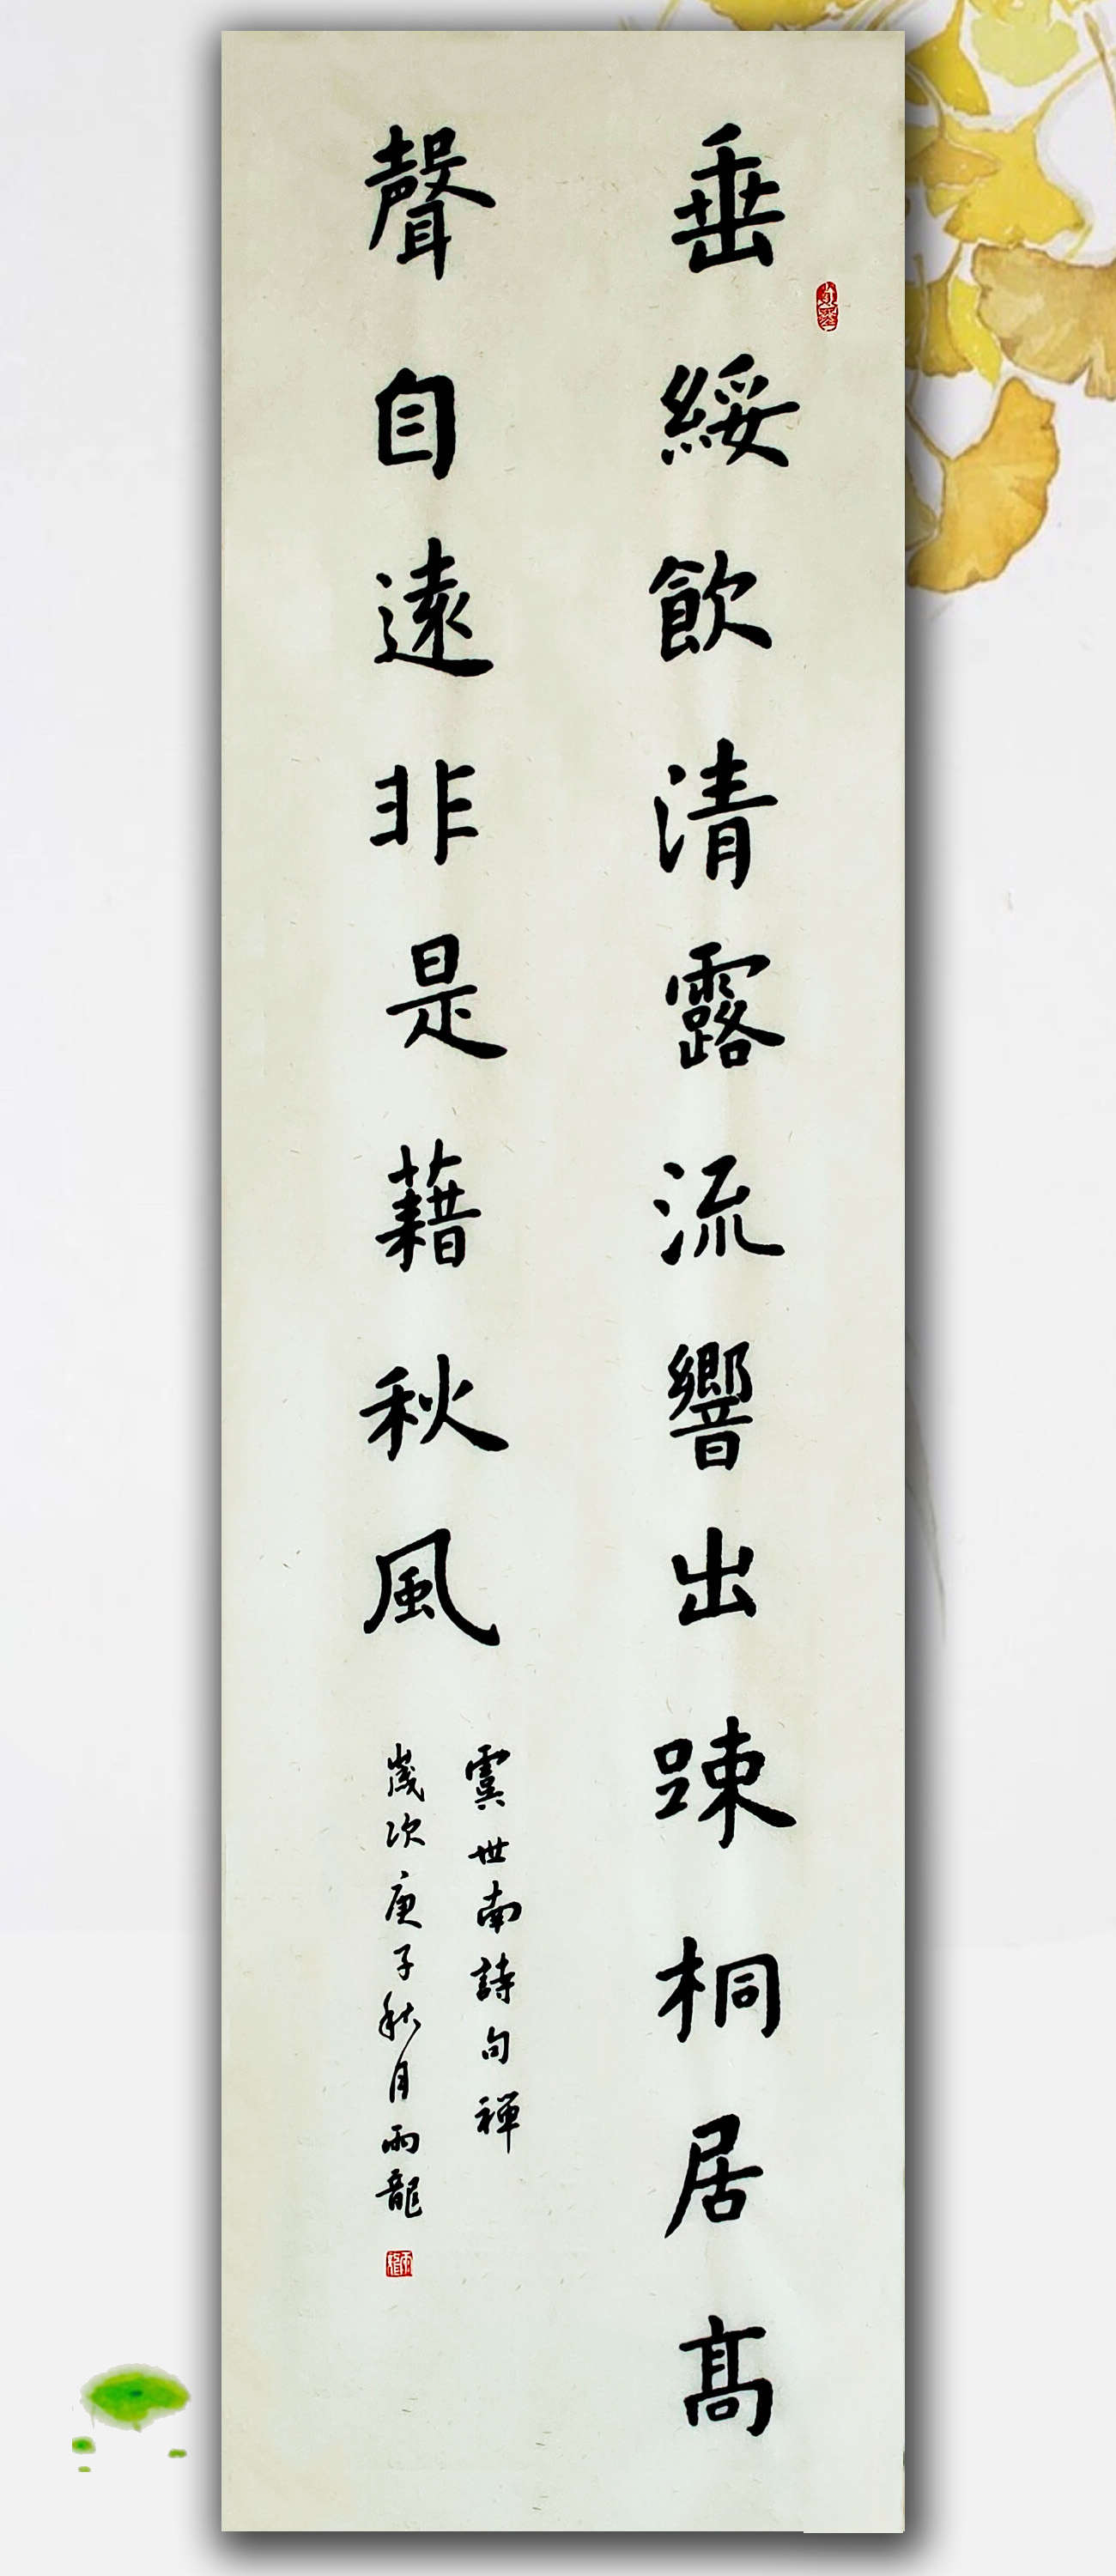 垂緌飲清露流響出踈桐居髙
聲自遠非是藉秋風
虞世南詩句禅
歲次庚子秋月雨龍